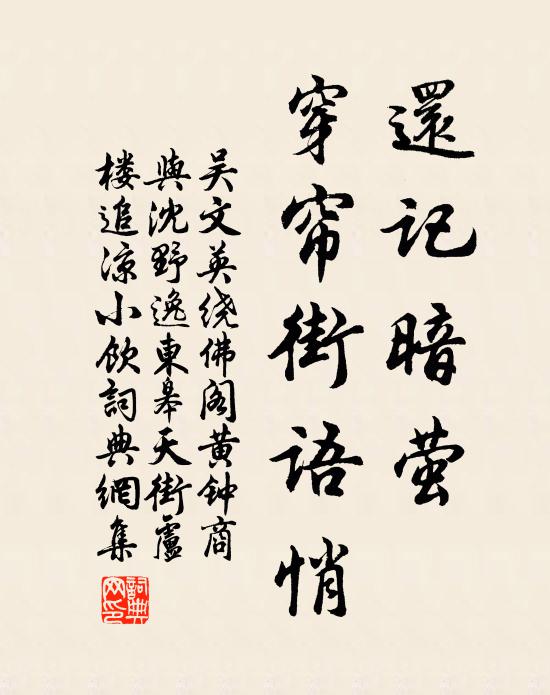 還记暗萤
穿帘街语悄
吴文英绕佛阁黄钟商
與沈野逸東皋天街盧
楼追凉小飲詞典網集
詞典网印